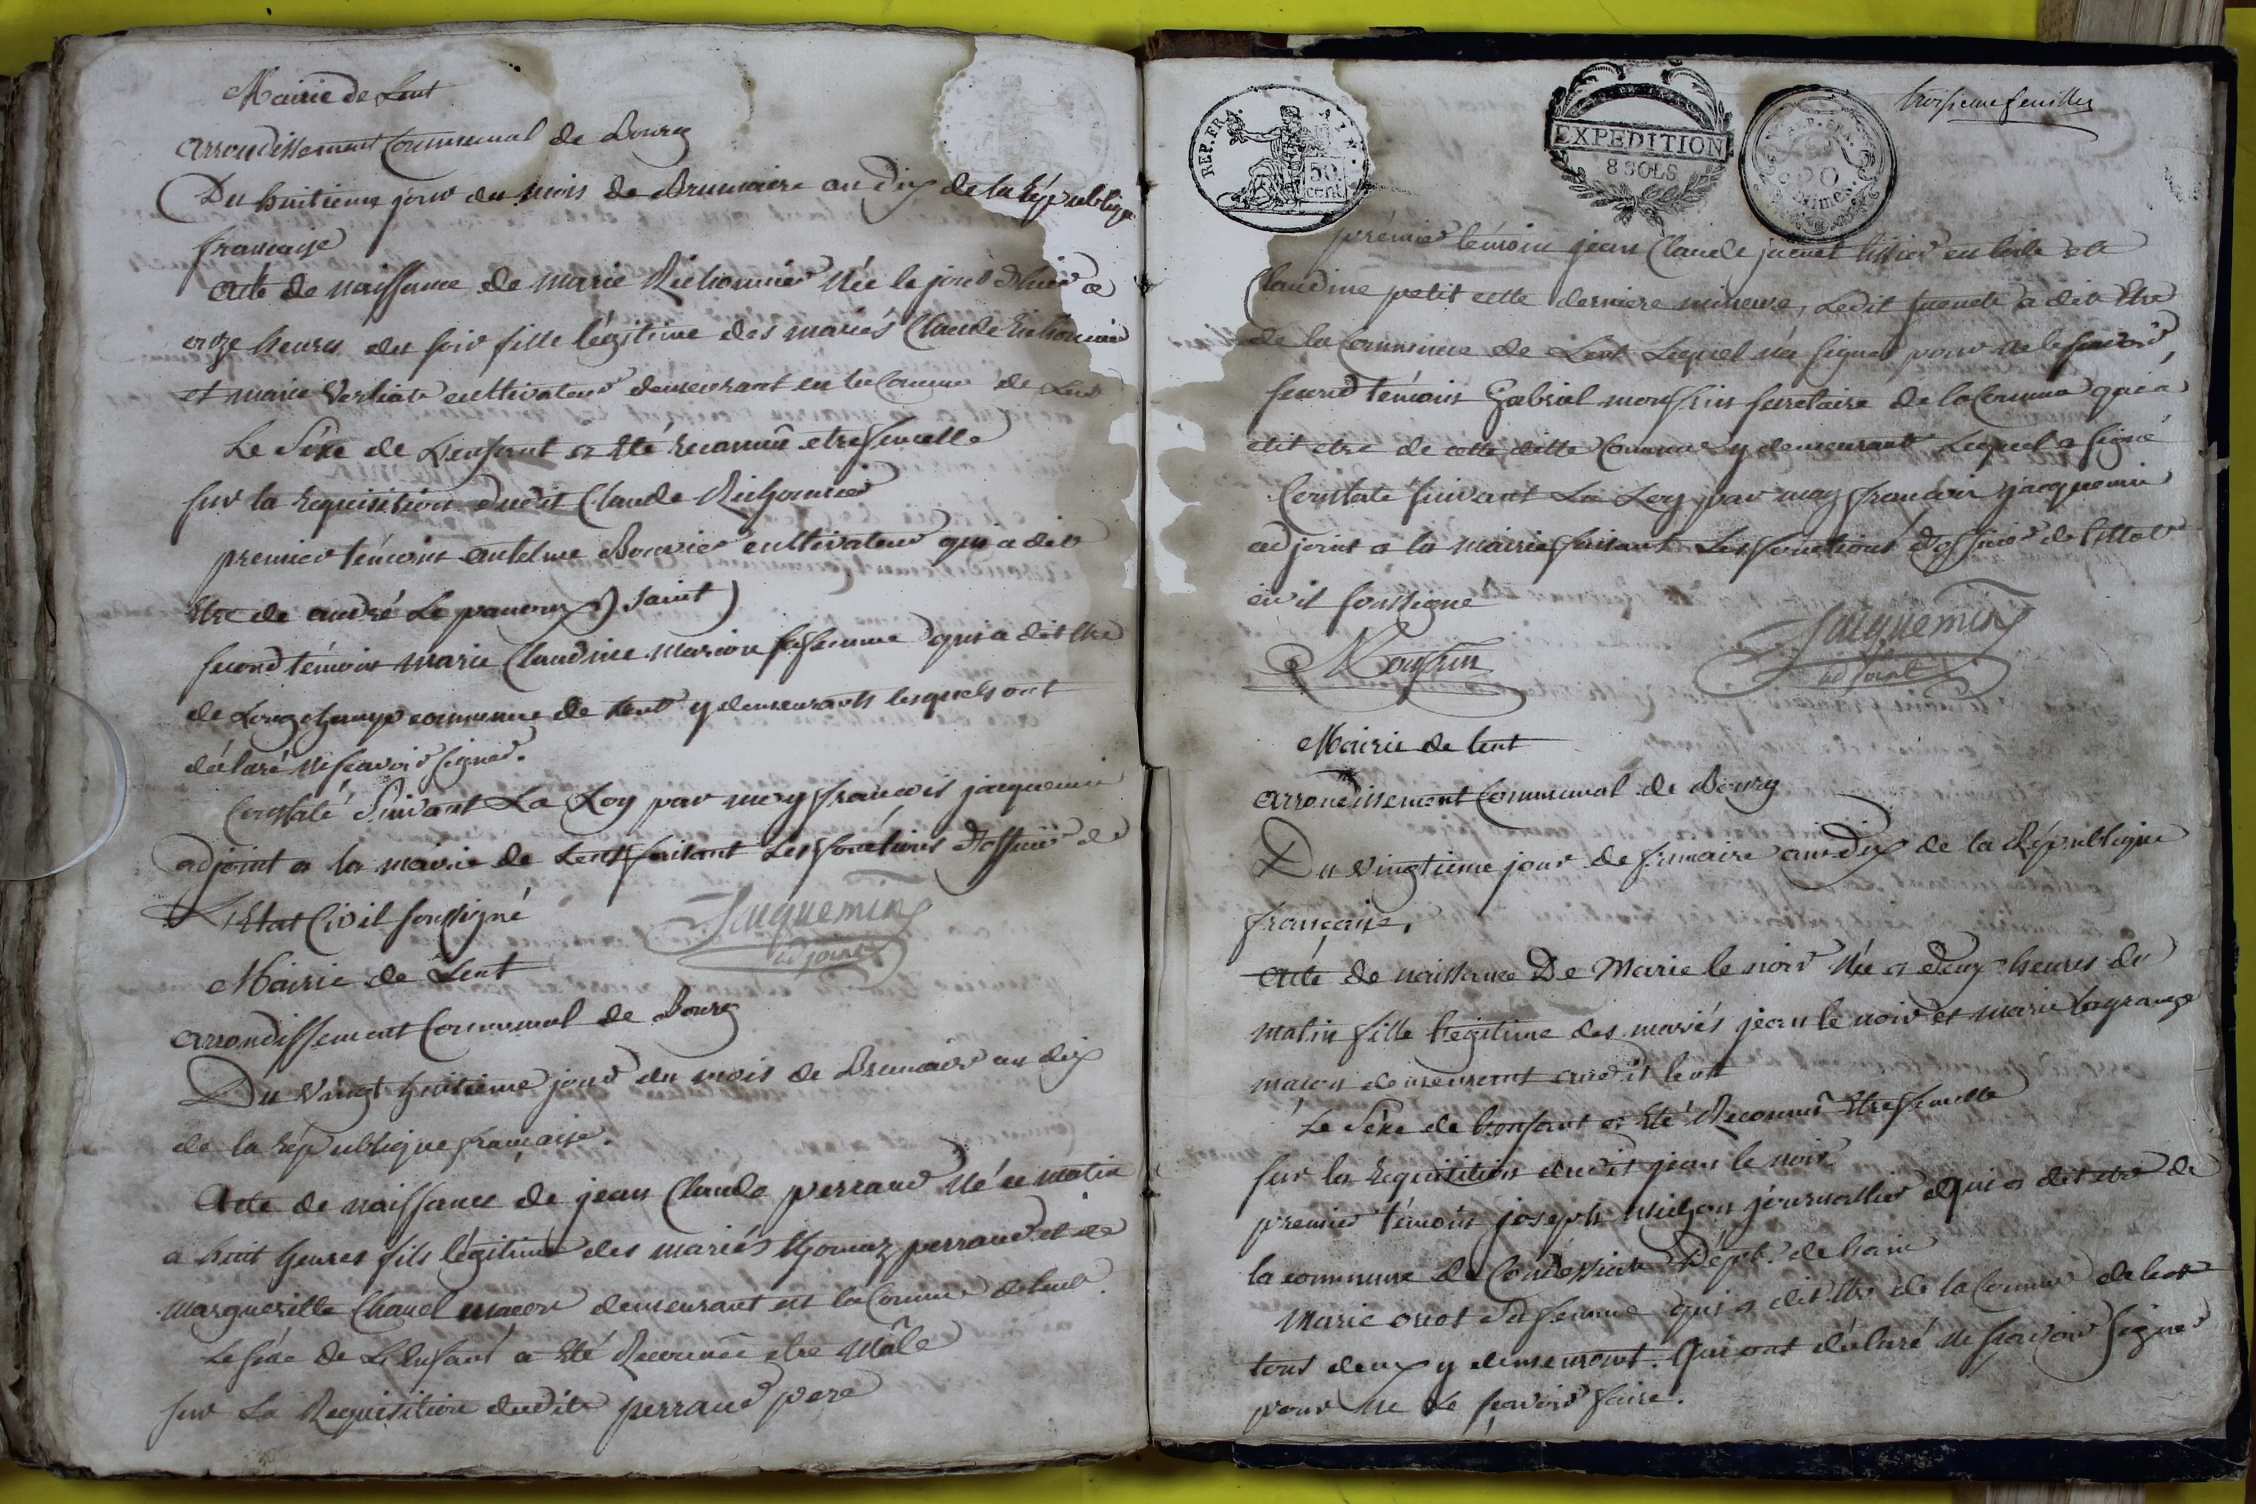 Mairie de Lent
arrondissement Communal de Bourg
Du huitieme jour du mois de Brumaire an dix de la République
française
acte de naissance de marie Richonnier Née le jour d'hier a
onze heures du soir fille légitime des mariés Claude Richonnier
et marie Verliat cultivateur demeurant en la Comune de Lent
Le Séxe de L'enfant a Eté reconnuë etre femelle
sur la requisition dudit Claude Richonnier
premier témoin antelme Bouvier cultivateur qui a dit
Etre de andré Le panoux) Saint)
second témoin marie Claudine marion sa femme qui a dit Etre
de Longchamp commune de Lent y demeurants lesquels ont
déclaré ne scavoir signer.
Constaté Suivant La Loy par moy françois jacquemin
adjoint a la mairie de Lent faisant Les fonctions d'officier de
L'Etat Civil soussigné
Jacquemin
adjoint
Mairie de Lent
arrondissement Communal de Bourg
Du vingt huitieme jour du mois de Brumaire an dix
de la république française.
Acte de naissance de jean Claude perraud Né ce matin
a huit heures fils légitime des mariés thomaz perraud et de
margueritte Chanel macon demeurant en la Comune de Lent.
Le séxe de L'Enfant a Eté Reconnuë etre Mâle
sur La Requisition dudit perraud pere
troisieme feuillet
REP. FRA.
50 cent
EXPEDITION
8 SOLS
REP. FRA.
premier témoin jean Claude jacuet tissier en toile et
Claudine petit cette derniere mineure, Ledit jacuet a dit Etre
de la Commune de Lent Lequel n'a signé pour ne le scavoir
second témoin Gabriel monssin secretaire de la Comune qui a
dit etre de cette ditte Commune y demeurant Lequel a signé
Constaté suivant La Loy par moy francois jacquemin
adjoint a la mairie faisant Les fonctions d'officier de l'Etat
civil soussigné
Jacquemin
adjoint
Mairie de Lent
arrondissement Communal de Bourg
Du vingtieme jour de frimaire an Dix de la République
française,
acte de naissance De Marie le noir Née a deux heures du
matin fille légitime des mariés jean le noir et marie lagrange
macon demeurant audit lent
Le Séxe de l'enfant a Eté Reconnuë Etre femelle
sur la requisition dudit jean le noir
premier témoin joseph michon journallier Qui a dit etre de
la commune de Condessiat Dépt. de L'ain
Marie oriot Sa femme qui a dit Etre de la Comune de lent
tous deux y demeurant. Qui ont déclaré ne scavoir signer
pour Ne Le scavoir faire.